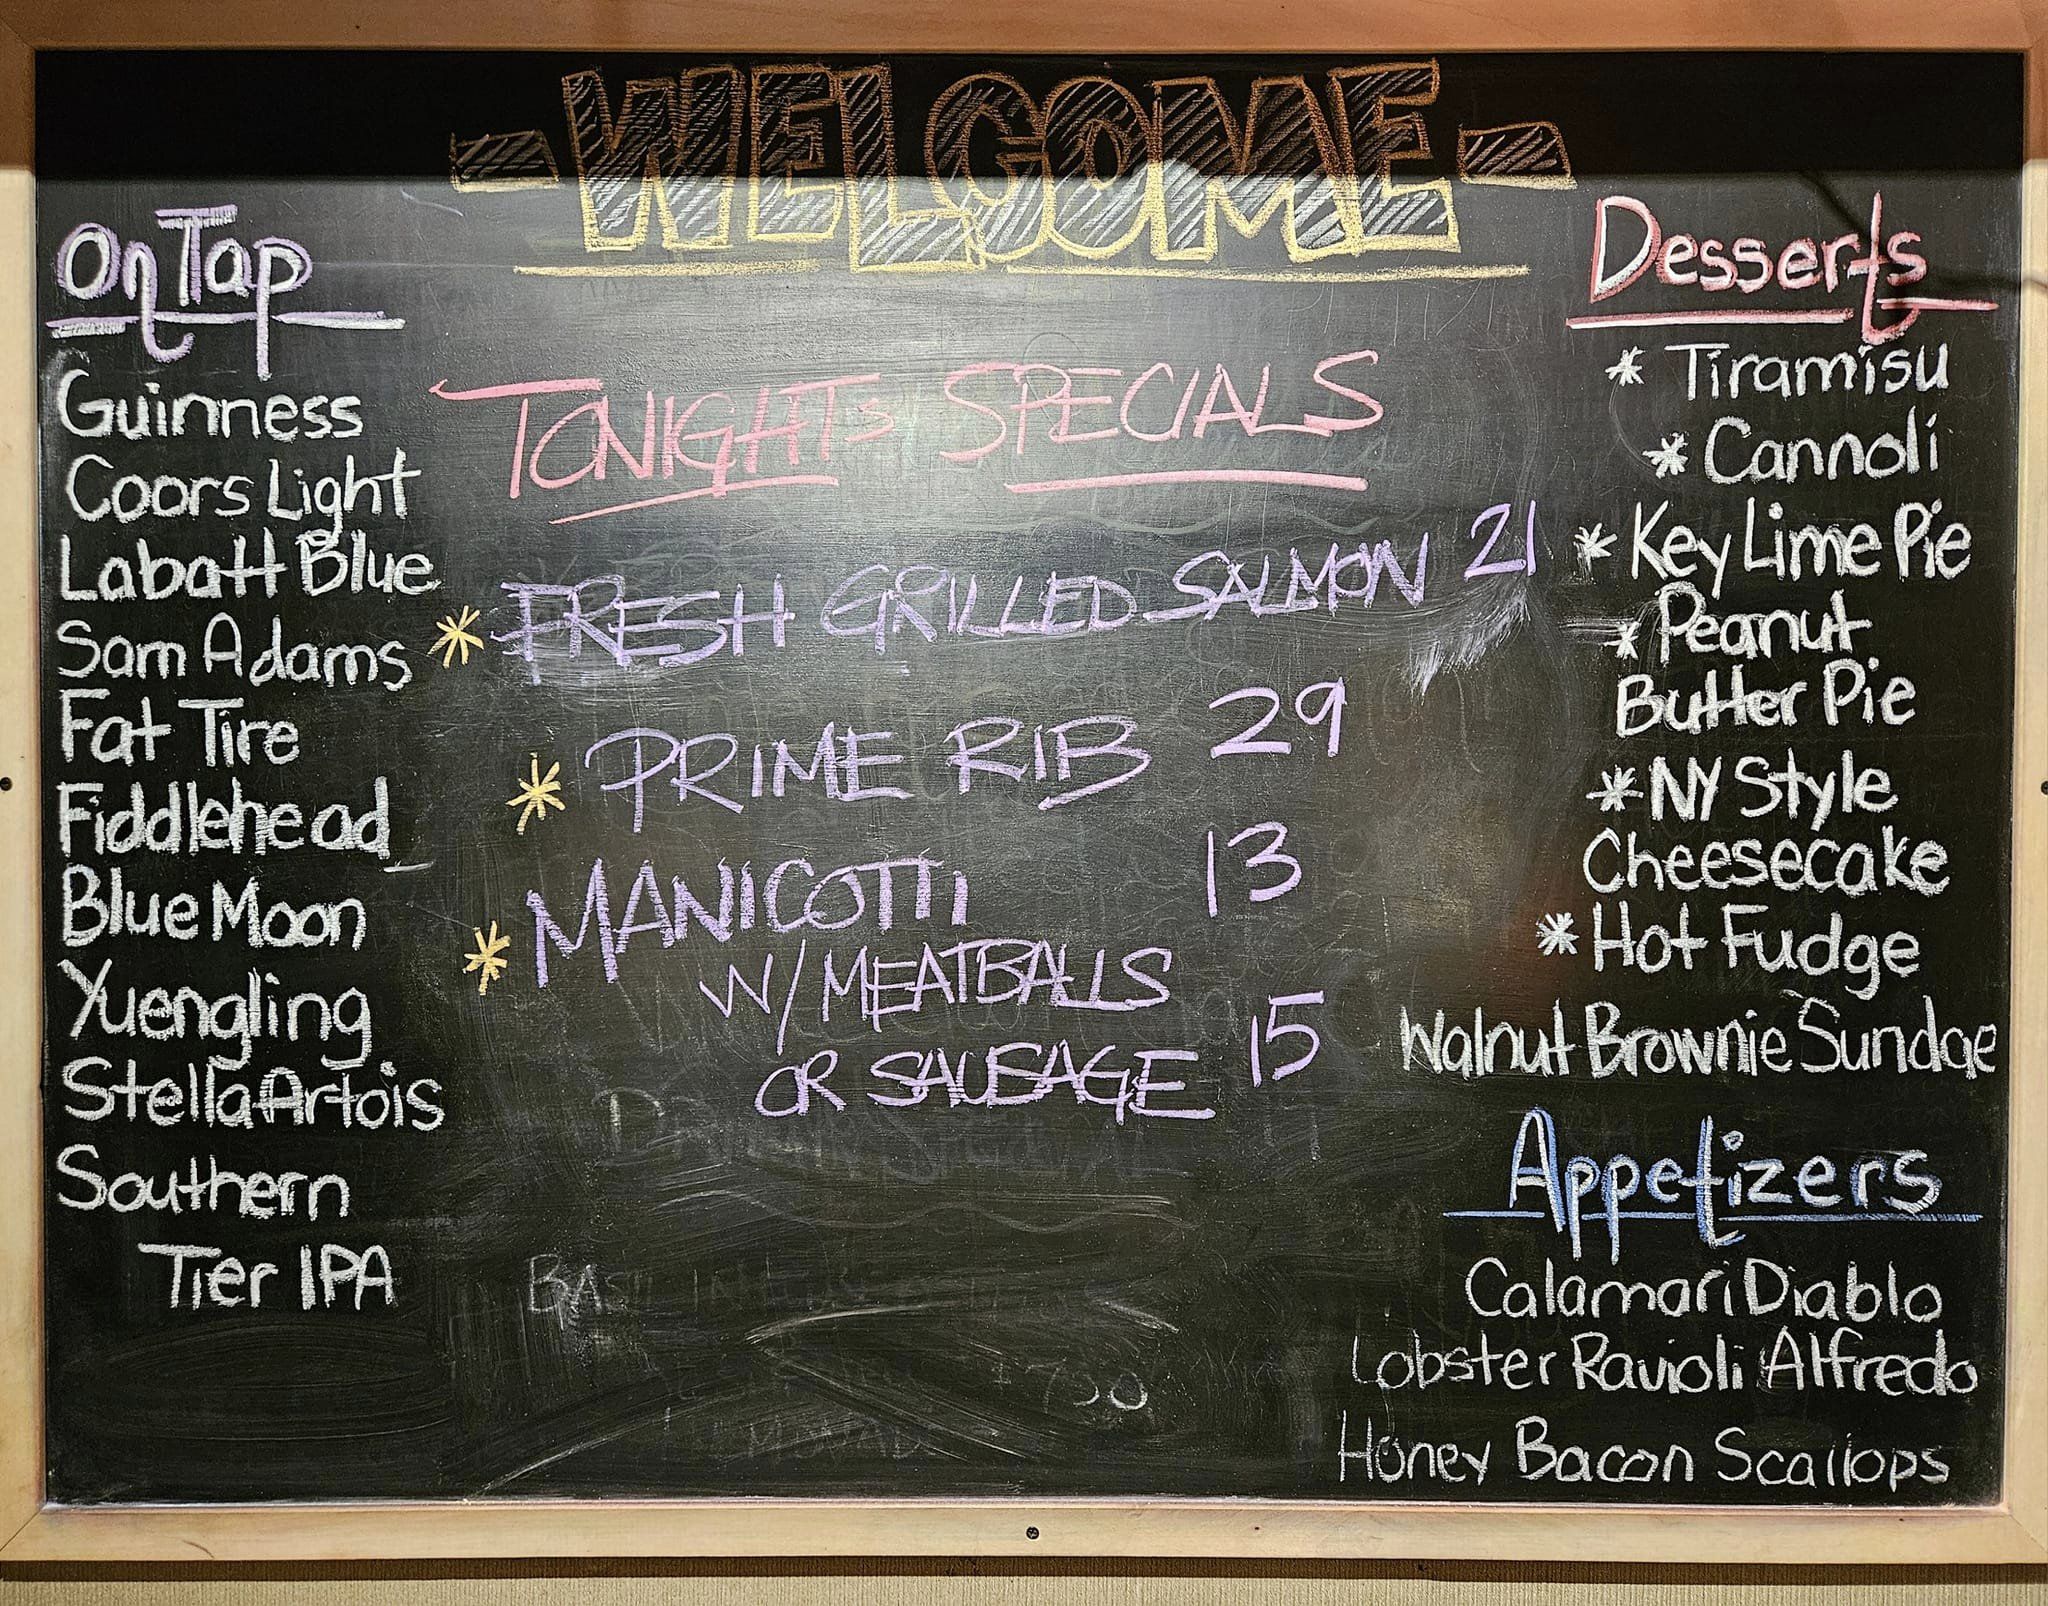 -WELCOME-
On Tap
Guinness
Coors Light
Labatt Blue
Sam Adams
Fat Tire
Fiddlehead
Blue Moon
Yuengling
Stella Artois
Southern
Tier IPA
TONIGHTs SPECIALS
* FRESH GRILLED SALMON 21
* PRIME RIB 29
* MANICOTTI 13
W/ MEATBALLS
OR SAUSAGE 15
Desserts
* Tiramisu
* Cannoli
* Key Lime Pie
* Peanut
Butter Pie
* NY Style
Cheesecake
* Hot Fudge
Walnut Brownie Sundae
Appetizers
Calamari Diablo
Lobster Ravioli Alfredo
Honey Bacon Scallops